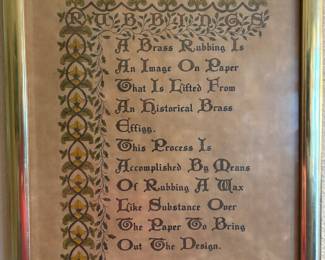 RUBBINGS
A Brass Rubbing Is
An Image On Paper
That Is Lifted From
An Historical Brass
Effigy.
This Process Is
Accomplished By Means
Of Rubbing A Wax
Like Substance Over
The Paper To Bring
Out The Design.